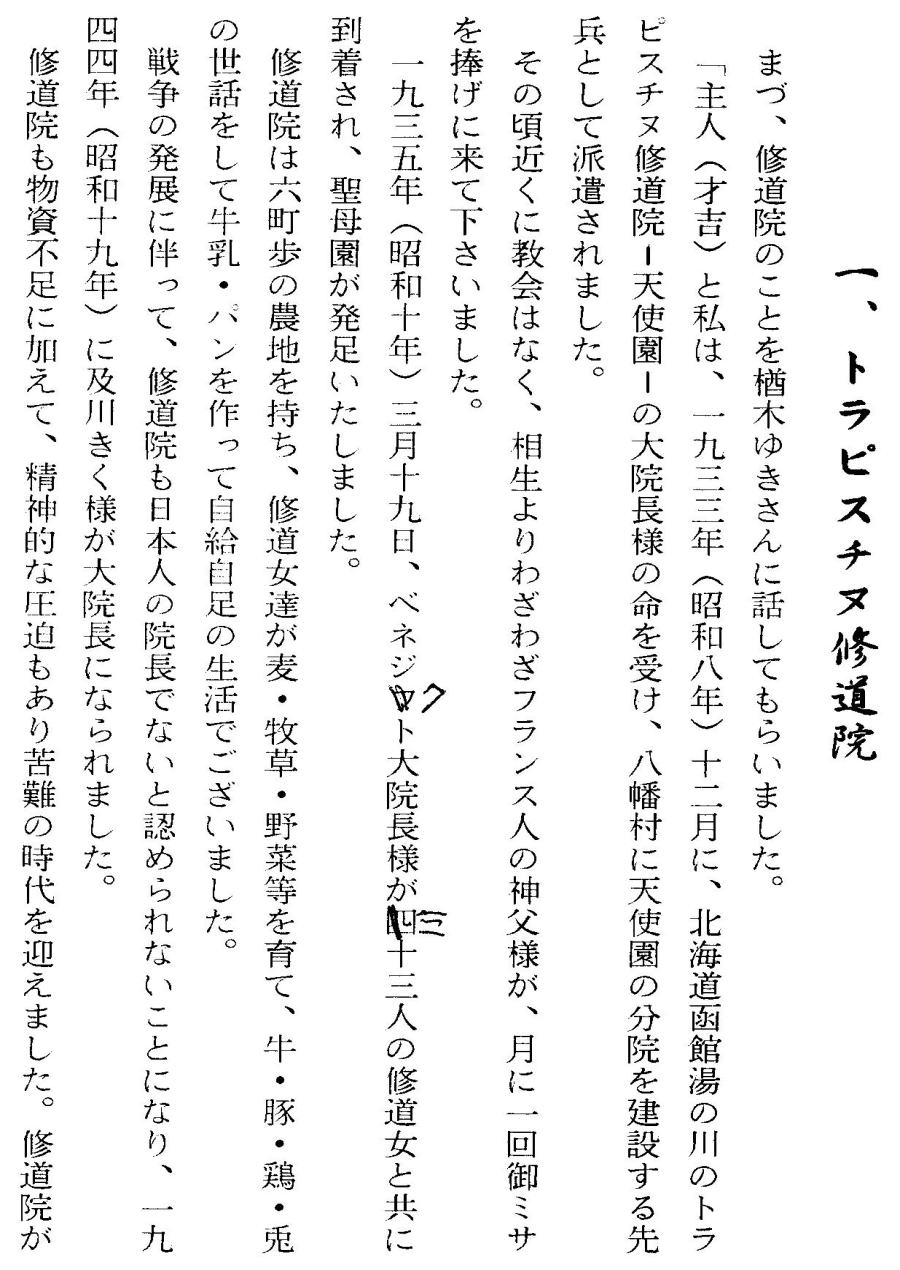 一、トラピスチヌ修道院
まづ、修道院のことを楢木ゆきさんに話してもらいました。
「主人（才吉）と私は、一九三三年（昭和八年）十二月に、北海道函館湯の川のトラ
ピスチヌ修道院ー天使園ーの大院長様の命を受け、八幡村に天使園の分院を建設する先
兵として派遣されました。
その頃近くに教会はなく、相生よりわざわざフランス人の神父様が、月に一回御ミサ
を捧げに来て下さいました。
一九三五年（昭和十年）三月十九日、ベネジクト大院長様が三十三人の修道女と共に
到着され、聖母園が発足いたしました。
修道院は六町歩の農地を持ち、修道女達が麦・牧草・野菜等を育て、牛・豚・鶏・兎
の世話をして牛乳・パンを作って自給自足の生活でございました。
戦争の発展に伴って、修道院も日本人の院長でないと認められないことになり、一九
四四年（昭和十九年）に及川きく様が大院長になられました。
修道院も物資不足に加えて、精神的な圧迫もあり苦難の時代を迎えました。修道院が